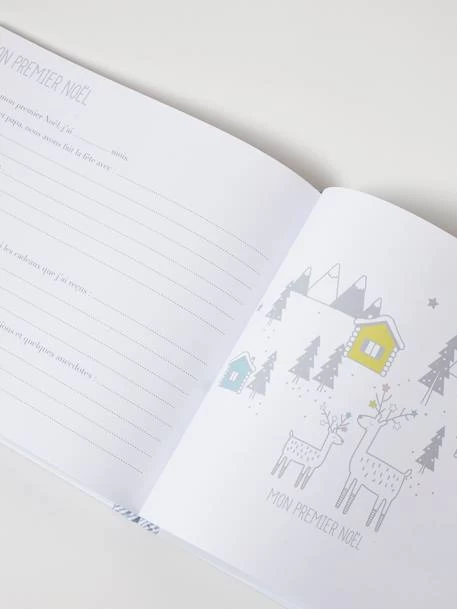 MON PREMIER NOËL
mon premier Noël, j'ai mois.
et papa, nous avons fait la fête avec :
les cadeaux que j'ai reçus :
et quelques anecdotes :
MON PREMIER NOËL